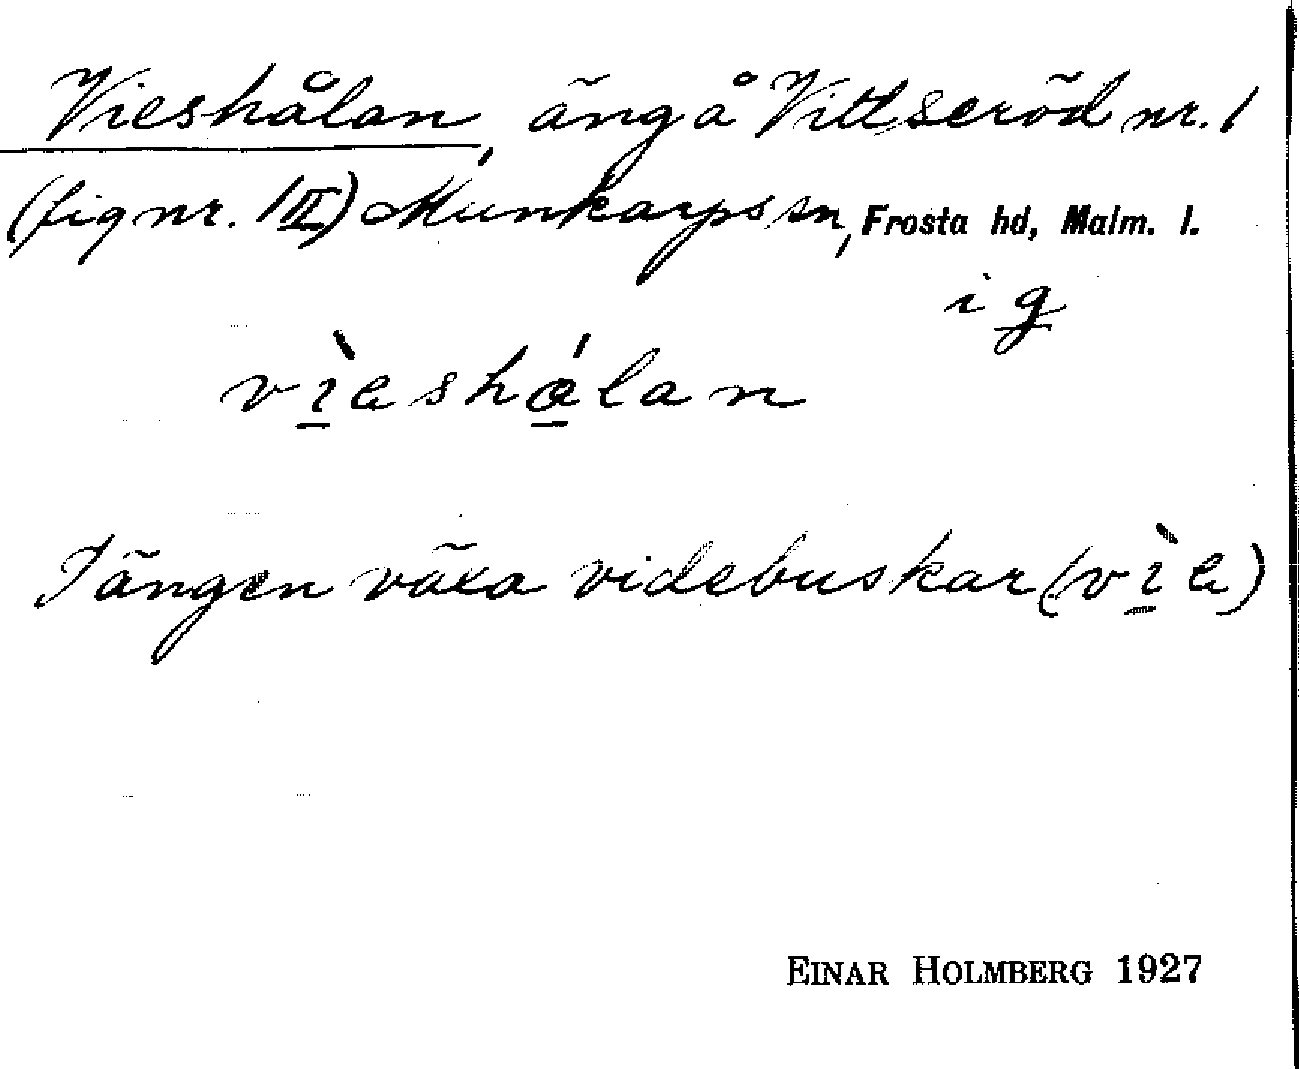 Vieshålan, äng å Vittseröd nr. 1
(fig nr. 1 II) Munkarps sn, Frosta hd, Malm. l.
i g
vı̱̀ash<u>å</u>́lan
I ängen växa videbuskar (vı̱̀a)
EINAR HOLMBERG 1927